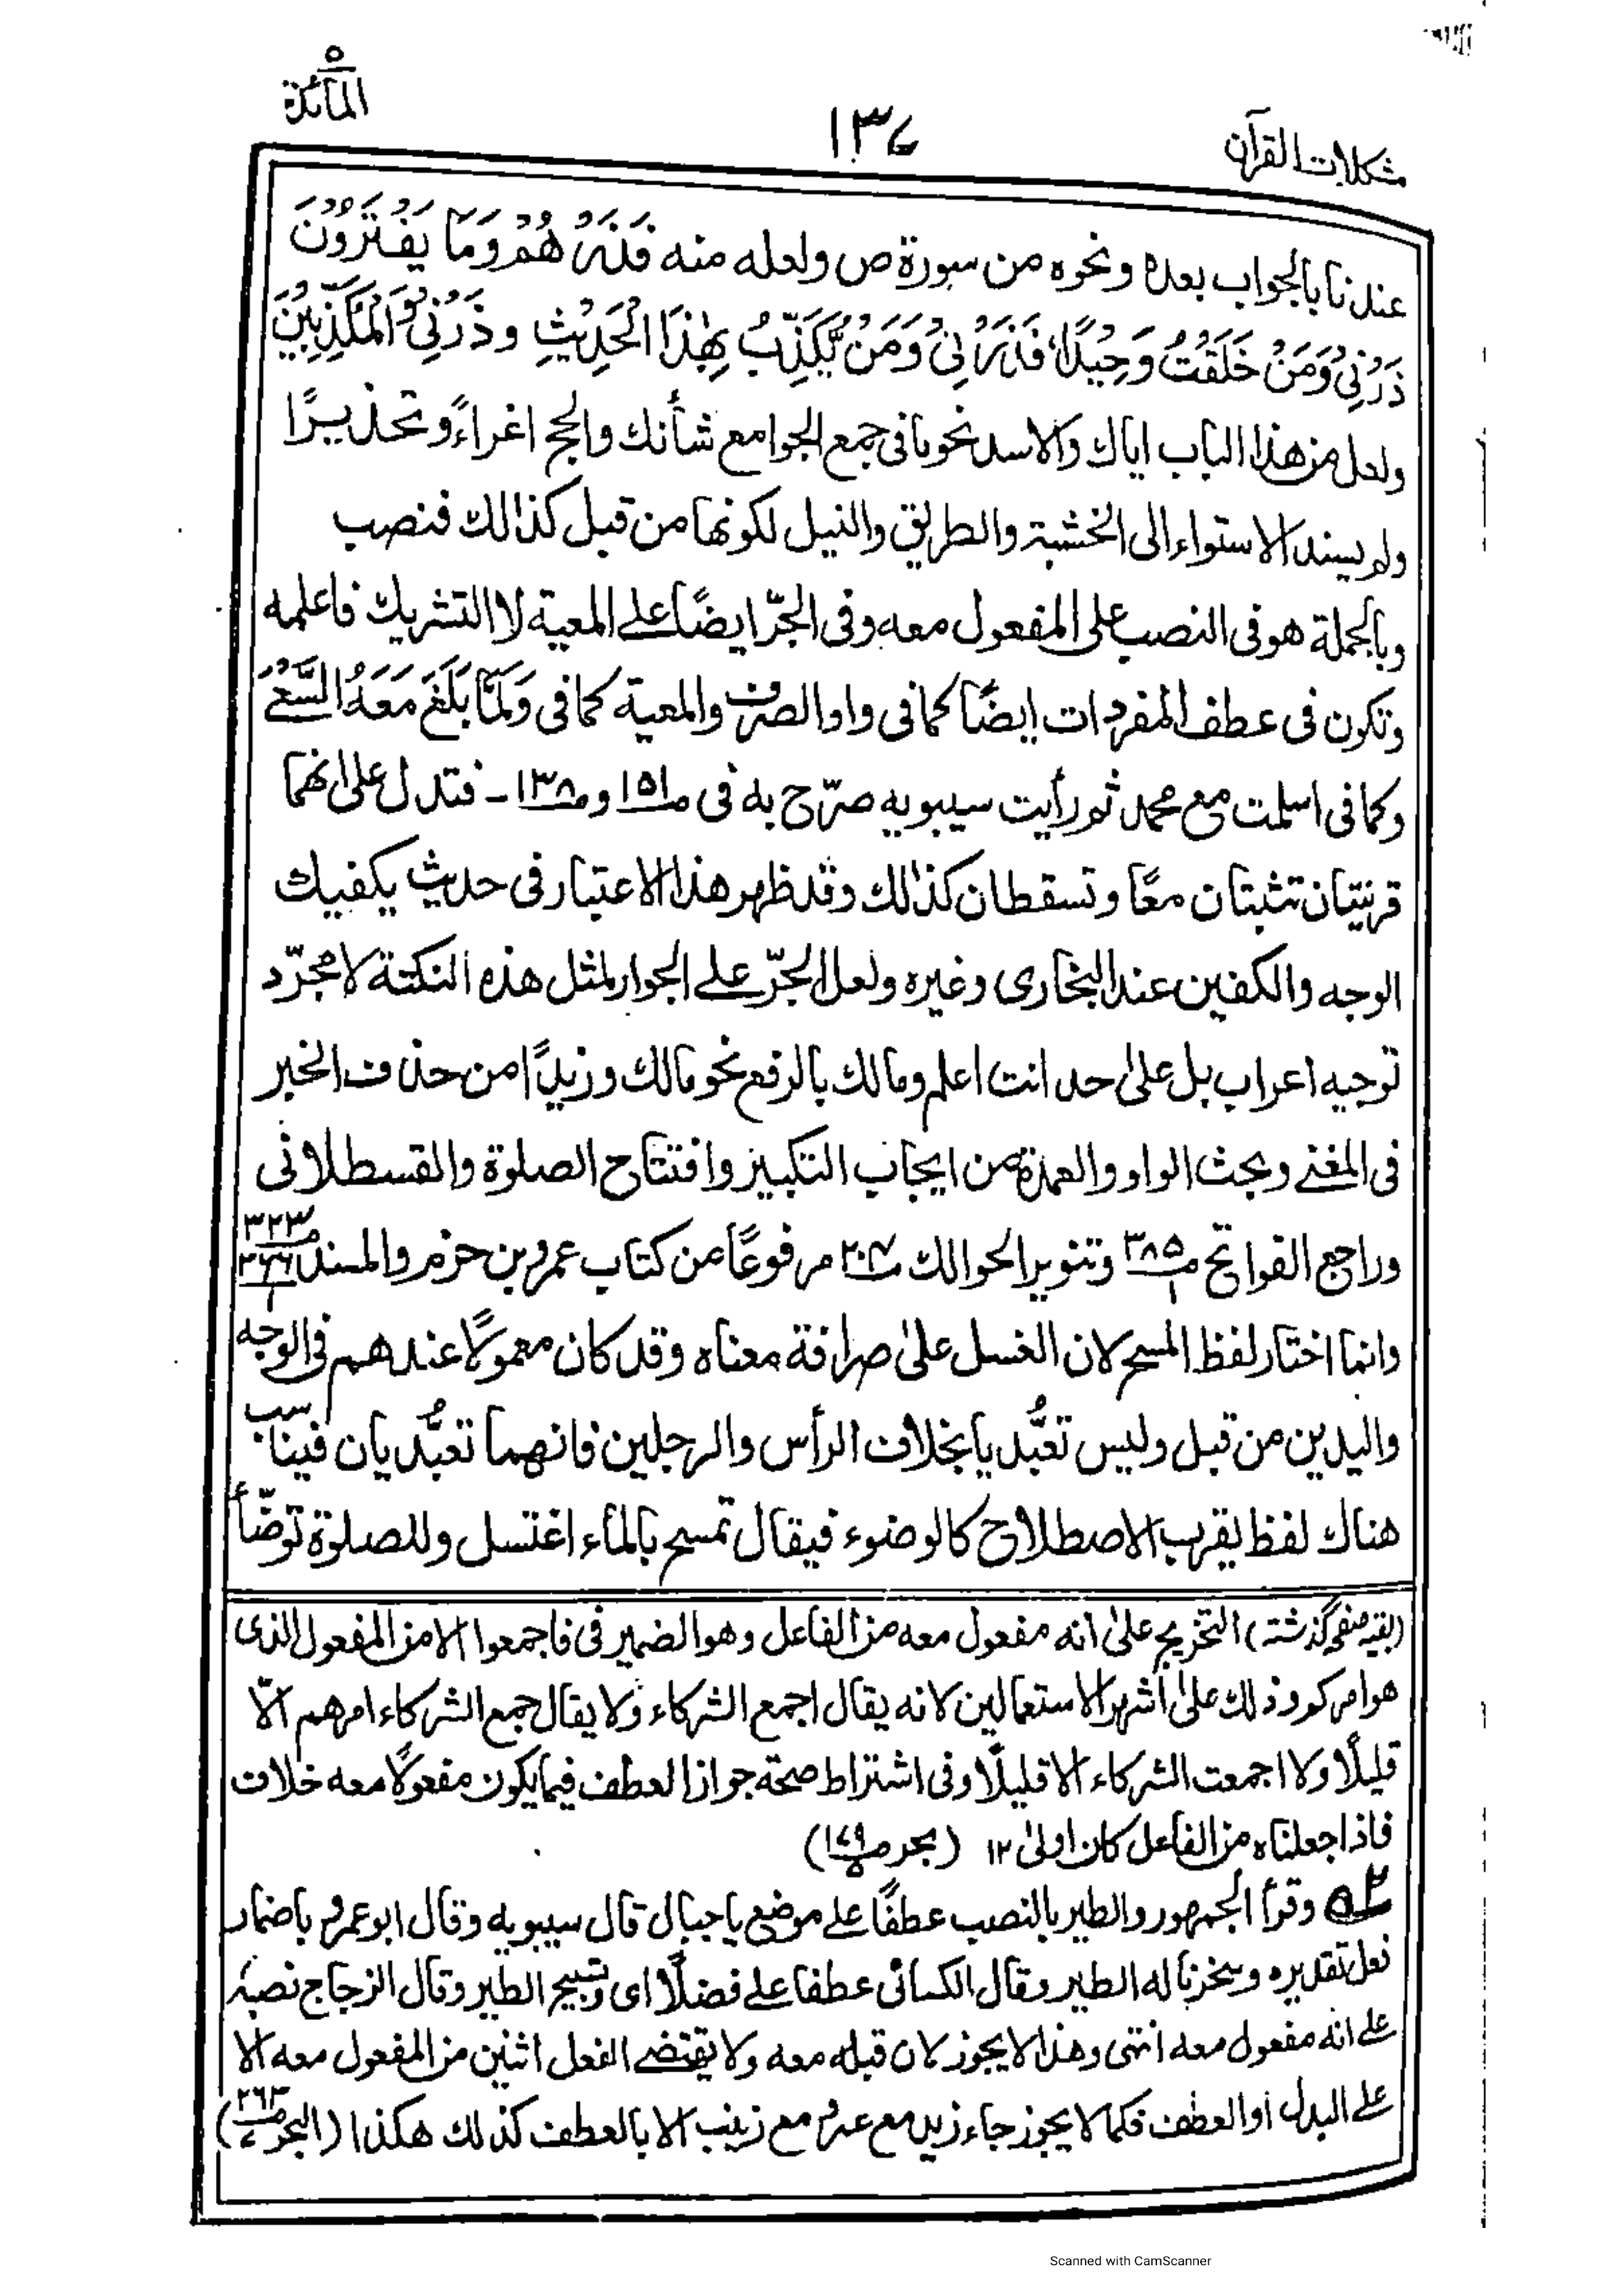 مشكلات القرآن
١٣٧
المائدة
٥
عندنا بالجواب بعدہ ونحوه من سورة ص ولعله منه فَذَرْهُمْ وَمَا يَفْتَرُوْنَ
ذَرْنِيْ وَمَنْ خَلَقْتُ وَحِيْدًا، فَذَرْنِيْ وَمَنْ يُّكَذِّبُ بِهٰذَا الْحَدِيْثِ وذَرْنِيْ وَالْمُكَذِّبِيْنَ
ولعل من هذا الباب اياك والاسد نحو ما فى جمع الجوامع شأنك والحج اغراءً وتحذيرًا
ولم يسند الاستواء الى الخشبة والطريق والنيل لكونها من قبل كذالك فنصب
وبالجملة هو فى النصب على المفعول معه وفى الجرّ ايضًا على المعية لا التشريك فاعلمه
وتكون فى عطف المفردات ايضًا كما فى واو الصرف والمعية كما فى وَلَمَّا بَلَغَ مَعَهُ السَّعْيَ
وكما فى اسلمت مع محمد ثم رأيت سيبويه صرّح به فى صـ ١٥١ وصـ ١٣٨ - فتدل على انهما
قرينتان تثبتان معًا وتسقطان كذلك وقد ظهر هذا الاعتبار فى حديث يكفيك
الوجه والكفين عند البخارى وغيره ولعل الجرّ على الجوار لمثل هذه النكتة لا مجرّد
توجيه اعراب بل على حد انت اعلم ومالك بالرفع نحو مالك وزيدًا من حذف الخبر
فى المغنى وبحث الواو والعمدة من ايجاب التكبير وافتتاح الصلوة والقسطلانى
وراجع الفواتح صـ ٣٨٥/١ وتنوير الحوالك صـ ٢٠٧ مرفوعًا من كتاب عمرو بن حزم والمسند صـ ٣٢٣
٣٦٦
وانما اختار لفظ المسح لان الغسل على صرافة معناه وقد كان معمولًا عندهم فى الوجه
واليدين من قبل وليس تعبُّديا بخلاف الرأس والرجلين فانهما تعبُّديان فيناسب
هناك لفظ يقرب الاصطلاح كالوضوء فيقال تمسح بالماء اغتسل وللصلوة توضّأ
(بقيہ صفحہ گذشتہ) التخريج على انه مفعول معه من الفاعل وهو الضمير فى فاجمعوا لا من المفعول الذى
هو امركم وذلك على اشهر الاستعمالين لانه يقال اجمع الشركاء ولا يقال جمع الشركاء امرهم الّا
قليلًا ولا اجمعت الشركاء الا قليلًا وفى اشتراط صحة جواز العطف فيما يكون مفعولًا معه خلاف
فاذا جعلناه من الفاعل كان اولى ١٢ (بحر صـ ١٧٩/٥)
٥٢ وقرأ الجمهور والطير بالنصب عطفًا على موضع يا جبال قال سيبويه وقال ابو عمرو باضمار
فعل تقديره وسخرنا له الطير وقال الكسائى عطفا على فضلًا اى وتسبيح الطير وقال الزجاج نصبہ
على انه مفعول معه انتهى وهذا لا يجوز لان قبله معه ولا يقتضى الفعل اثنين من المفعول معه الا
على البدل او العطف فكما لا يجوز جاء زيد مع عمرو مع زينب الا بالعطف كذلك هكذا (البحر صـ ٢٦٣/٧)
Scanned with CamScanner